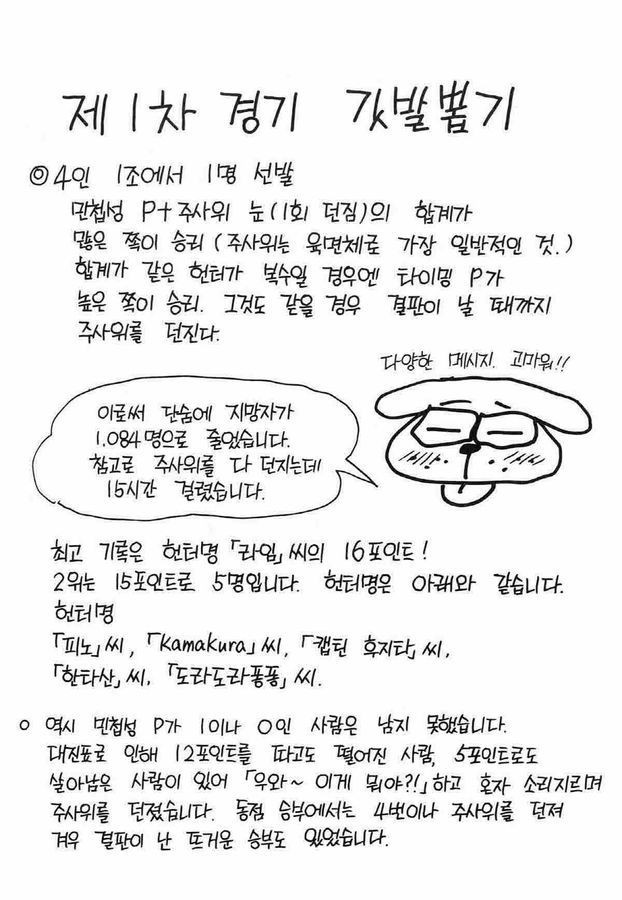 제 1차 경기 깃발뽑기
◎4인 1조에서 1명 선발
민첩성 P+주사위 눈(1회 던짐)의 합계가
많은 쪽이 승리(주사위는 육면체로 가장 일반적인 것.)
합계가 같은 헌터가 복수일 경우엔 타이밍 P가
높은 쪽이 승리. 그것도 같을 경우 결판이 날 때까지
주사위를 던진다.
다양한 메시지. 고마워!!
이로써 단숨에 지망자가
1.084명으로 줄었습니다.
참고로 주사위를 다 던지는데
15시간 걸렸습니다.
최고 기록은 헌터명 「라임」씨의 16포인트!
2위는 15포인트로 5명입니다. 헌터명은 아래와 같습니다.
헌터명
「피노」씨, 「Kamakura」씨, 「캡틴 후지타」씨,
「한타산」씨. 「도라도라퐁퐁」씨.
○ 역시 민첩성 P가 1이나 0인 사람은 남지 못했습니다.
대진표로 인해 12포인트를 따고도 떨어진 사람, 5포인트로도
살아남은 사람이 있어 「우와~ 이게 뭐야?!」하고 혼자 소리지르며
주사위를 던졌습니다. 동점 승부에서는 4번이나 주사위를 던져
겨우 결판이 난 뜨거운 승부도 있었습니다.